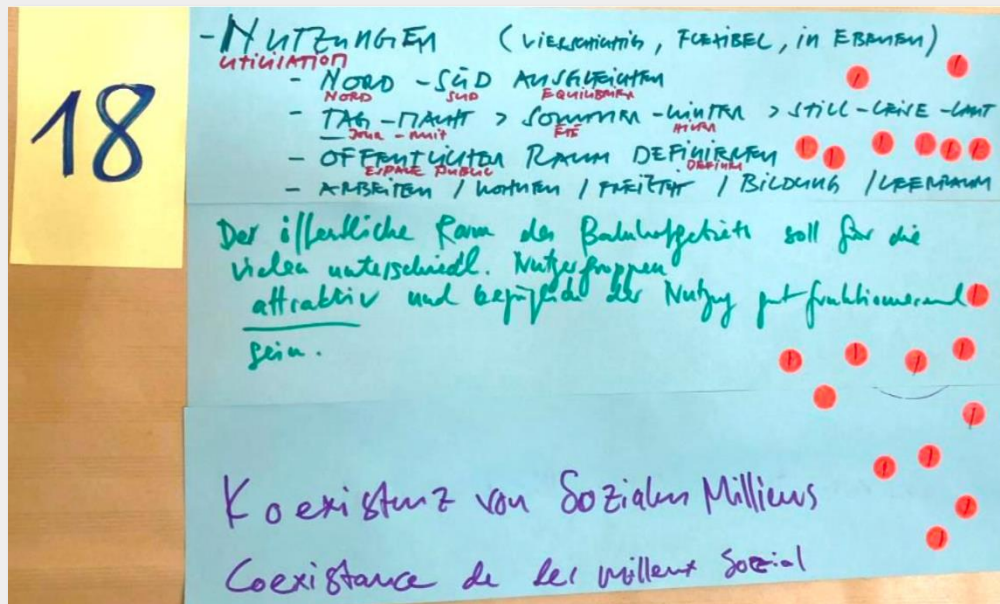 18
- NUTZUNGEN (VIELSCHICHTIG, FLEXIBEL, IN EBENEN)
UTILISATION
- NORD - SÜD AUSGLEICHEN
NORD SUD EQUILIBRER
- TAG - NACHT > SOMMER - WINTER > STILL - LEISE - LAUT
Jour - nuit ÉTÉ HIVER
- ÖFFENTLICHEN RAUM DEFINIEREN
ESPACE PUBLIC DEFINIR
- ARBEITEN / WOHNEN / FREIZEIT / BILDUNG / LEERRAUM
Der öffentliche Raum des Bahnhofgebiets soll für die
vielen unterschiedl. Nutzergruppen
attraktiv und bezüglich der Nutzung gut funktionierend
sein.
Koexistenz von Sozialen Millieus
Coexistance de les millieux Sozial